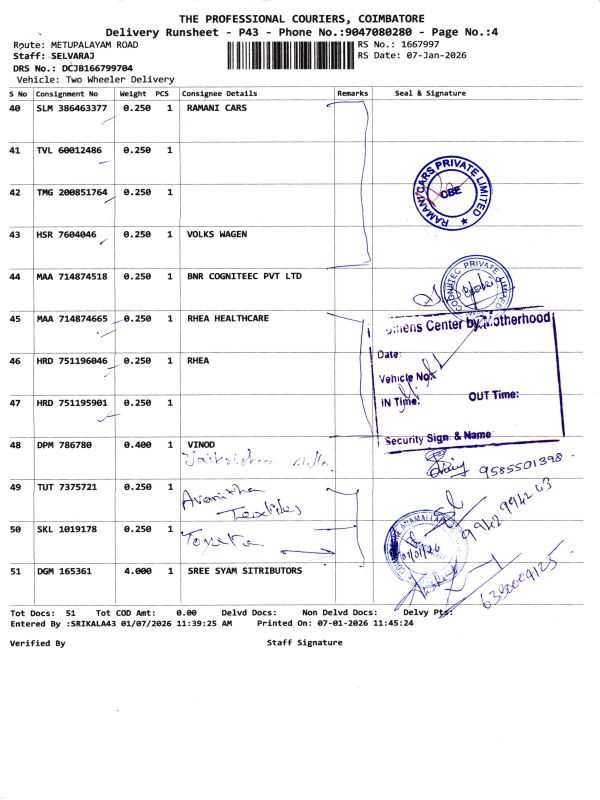 THE PROFESSIONAL COURIERS, COIMBATORE
Delivery Runsheet - P43 - Phone No.:9047080280 - Page No.:4
Route: METUPALAYAM ROAD
RS No.: 1667997
Staff: SELVARAJ
RS Date: 07-Jan-2026
DRS No.: DCJB166799704
Vehicle: Two Wheeler Delivery
S No Consignment No Weight PCS Consignee Details Remarks Seal & Signature
40 SLM 386463377 0.250 1 RAMANI CARS
41 TVL 60012486 0.250 1
42 TMG 200851764 0.250 1
RAMANI CARS PRIVATE LIMITED
CBE
43 HSR 7604046 0.250 1 VOLKS WAGEN
44 MAA 714874518 0.250 1 BNR COGNITEEC PVT LTD
COGNITEC PRIVATE LIMITED
45 MAA 714874665 0.250 1 RHEA HEALTHCARE
Center by Motherhood
46 HRD 751196046 0.250 1 RHEA
Date:
Vehicle No:
47 HRD 751195901 0.250 1
IN Time: OUT Time:
Security Sign & Name
48 DPM 786780 0.400 1 VINOD
9585501398
49 TUT 7375721 0.250 1
Textiles
9942 9942 43
50 SKL 1019178 0.250 1
Toyota
07/01/26
51 DGM 165361 4.000 1 SREE SYAM SITRIBUTORS
6380009125
Tot Docs: 51 Tot COD Amt: 0.00 Delvd Docs: Non Delvd Docs: Delvy Pts:
Entered By :SRIKALA43 01/07/2026 11:39:25 AM Printed On: 07-01-2026 11:45:24
Verified By Staff Signature